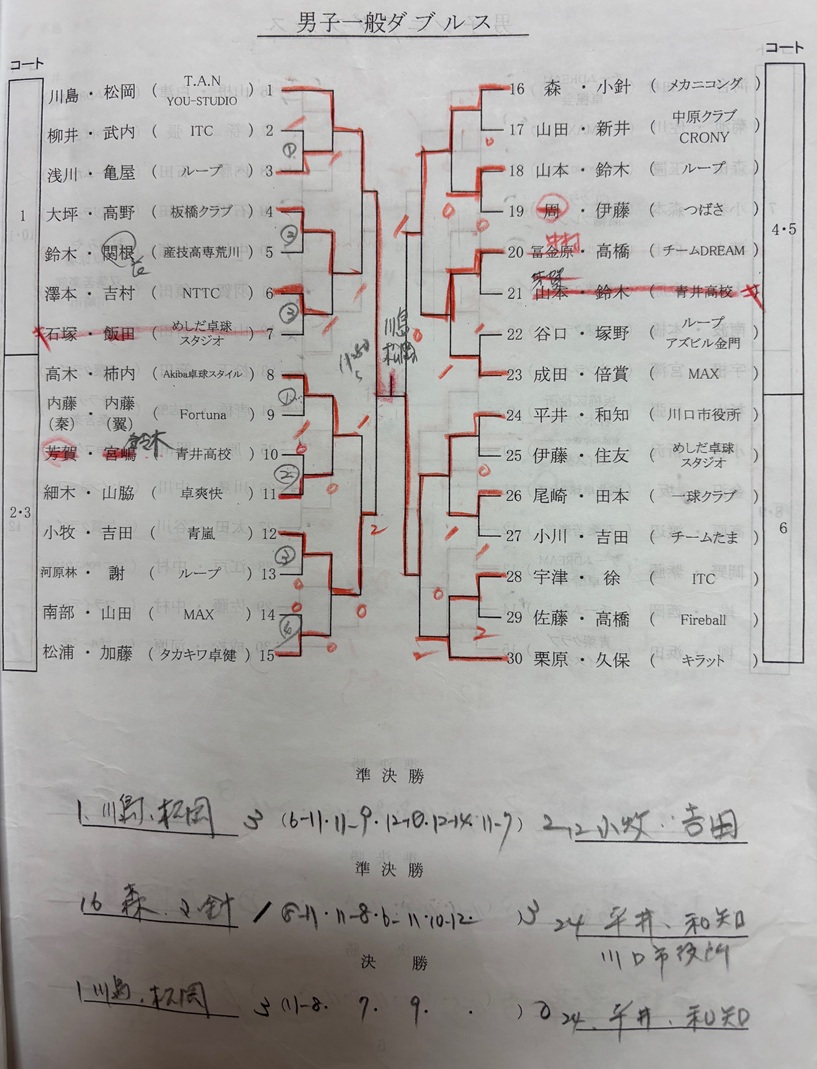 男子一般ダブルス
コート
コート
1
2・3
4・5
6
川島・松岡 ( T.A.N YOU-STUDIO ) 1
柳井・武内 ( ITC ) 2
浅川・亀屋 ( ループ ) 3
大坪・高野 ( 板橋クラブ ) 4
鈴木・関根 ( 産技高専荒川 ) 5
澤本・吉村 ( NTTC ) 6
石塚・飯田 ( めしだ卓球スタジオ ) 7
高木・柿内 ( Akiba卓球スタイル ) 8
内藤(秦)・内藤(翼) ( Fortuna ) 9
鈴木
芳賀・宮嶋 ( 青井高校 ) 10
細木・山脇 ( 卓爽快 ) 11
小牧・吉田 ( 青嵐 ) 12
河原林・謝 ( ループ ) 13
南部・山田 ( MAX ) 14
松浦・加藤 ( タカキワ卓健 ) 15
① ② ③ ① ② ③ ④
川島
松岡
16 森・小針 ( メカニコング )
17 山田・新井 ( 中原クラブ CRONY )
18 山本・鈴木 ( ループ )
19 周・伊藤 ( つばさ )
中村
20 冨金原・高橋 ( チームDREAM )
芳賀
21 山本・鈴木 ( 青井高校 )
22 谷口・塚野 ( ループ アズビル金門 )
23 成田・倍賞 ( MAX )
24 平井・和知 ( 川口市役所 )
25 伊藤・住友 ( めしだ卓球スタジオ )
26 尾崎・田本 ( 一球クラブ )
27 小川・吉田 ( チームたま )
28 宇津・徐 ( ITC )
29 佐藤・高橋 ( Fireball )
30 栗原・久保 ( キラット )
準決勝
1 川島、松岡 3 (6-11・11-9・12-10・12-14・11-7) 2 12 小牧・吉田
準決勝
16 森、小針 1 (8-11・11-8・6-11・10-12・ ) 3 24 平井、和知
川口市役所
決勝
1 川島、松岡 3 (11-8・7・9・・) 0 24、平井、和知